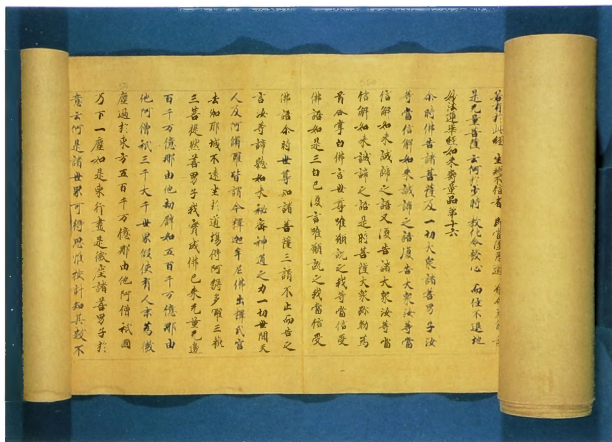 若有於此經 生疑不信者 即當墮惡道
是无量菩薩 云何於少時 教化令發心 而住不退地
妙法蓮華經如來壽量品第十六
尒時佛告諸菩薩及一切大衆諸善男子汝
等當信解如來誠諦之語復告大衆汝等當
信解如來誠諦之語又復告諸大衆汝等當
信解如來誠諦之語是時菩薩大衆弥勒爲
首合掌白佛言世尊唯願説之我等當信受
佛語如是三白已復言唯願説之我等當信受
佛語尒時世尊知諸菩薩三請不止而告之
言汝等諦聽如來秘密神通之力一切世間天
人及阿脩羅皆謂今釋迦牟尼佛出釋氏宮
去伽耶城不遠坐於道場得阿耨多羅三藐
三菩提然善男子我實成佛已來无量无邊
百千万億那由他劫譬如五百千万億那由
他阿僧祇三千大千世界假使有人末爲微
塵過於東方五百千万億那由他阿僧祇國
乃下一塵如是東行盡是微塵諸善男子於
意云何是諸世界可得思惟挍計知其數不